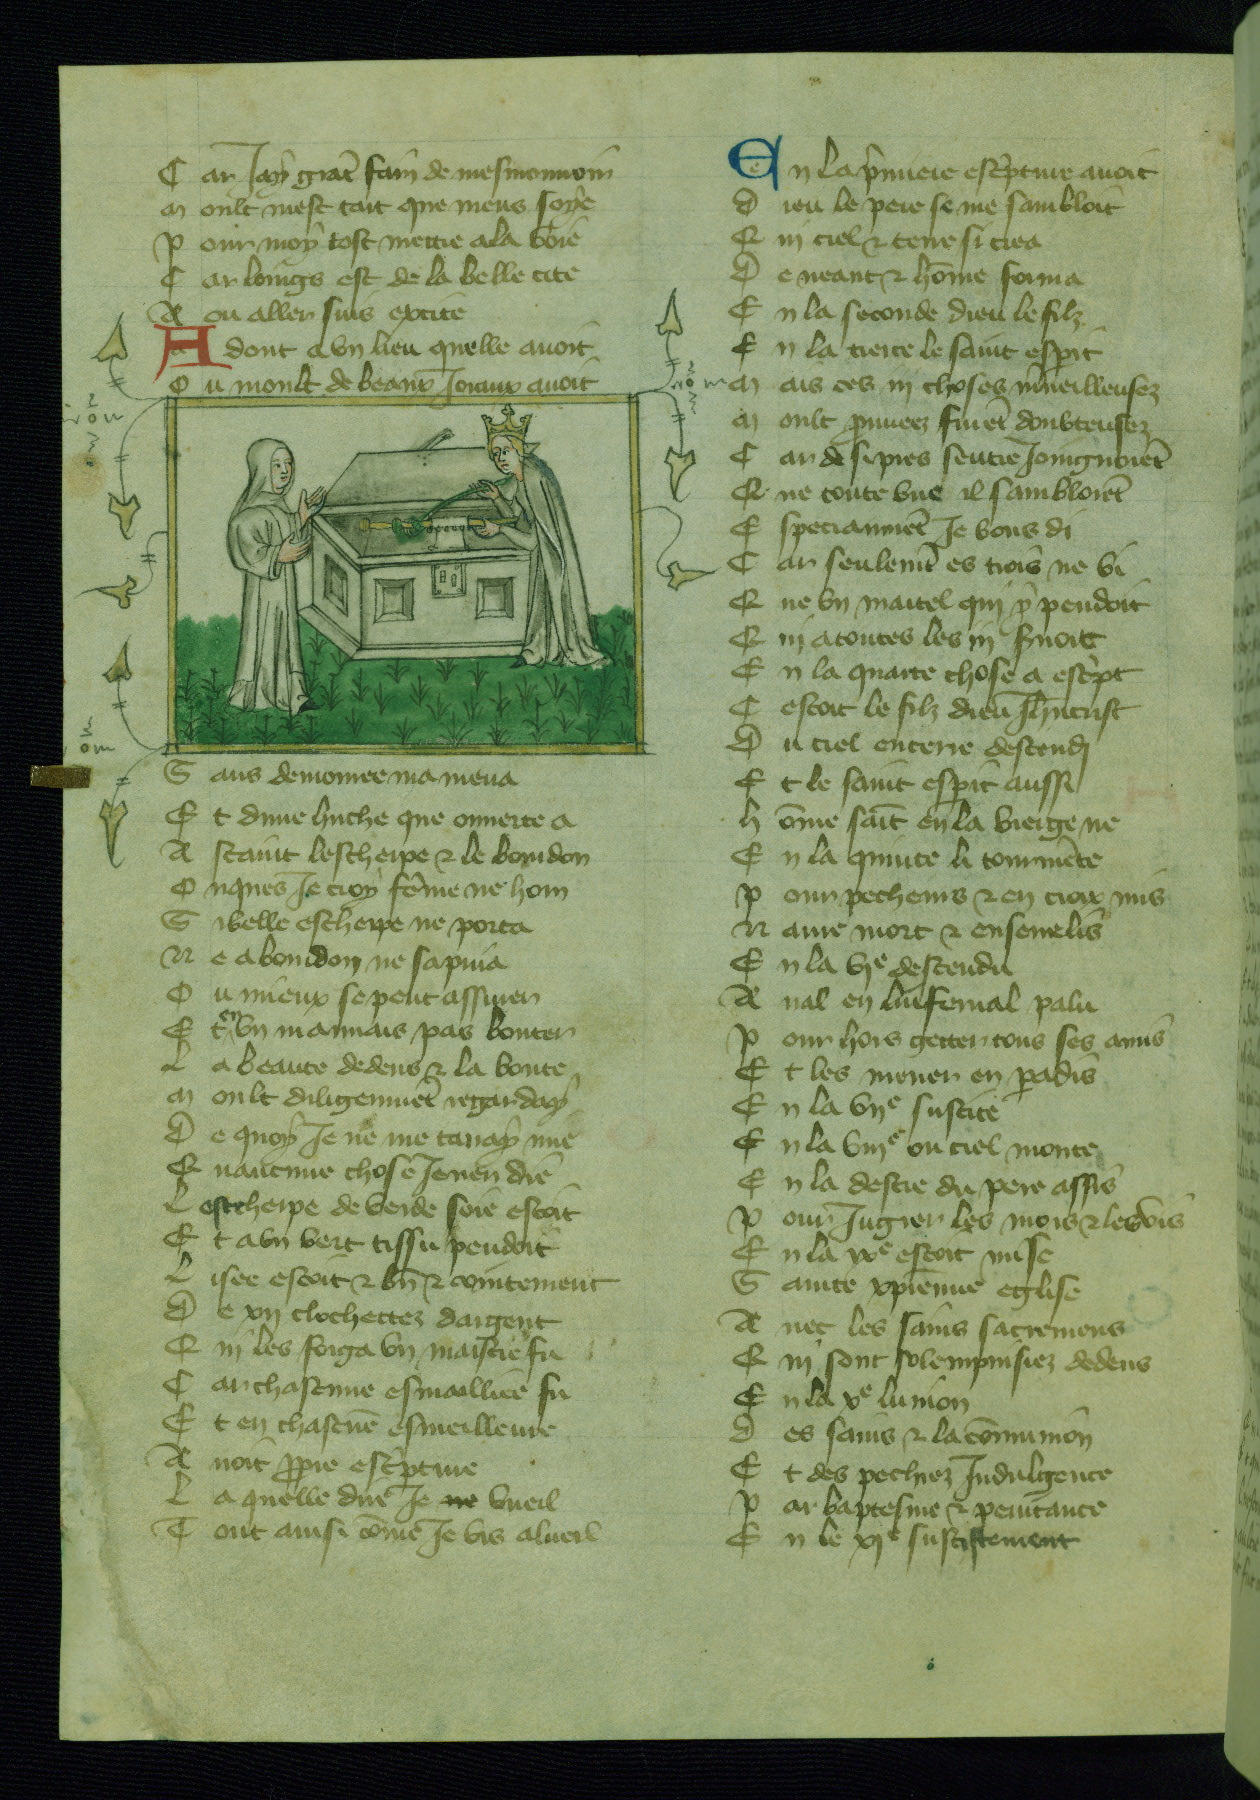 Car Jay grāt fain de mesmouuoir
Moult mest tart que meus soye
Pour moy tost mettre a la voie
Car loings est de la belle cite
A ou aller suis excite
Adont a vn lieu quelle auoit
Ou moult de beaux Joiaux auoit
Sans demouree ma mena
Et dune huche que ouuerte a
A scauit lescherpe & le bourdon
Onques Je croy fēme ne hom
Si belle escherpe ne porta
Ne a bourdon ne sapuia
Ou mieux se peut assurer
Et en vn mauuais pas bouter
La beaute dedens & la bonte
Moult diligenmēt regarday
De quoy Je ne me tairay mie
Qu aucune chose Jen en die
Lescherpe de verde soie estoit
Et a vn vert tissu pendoit
Lisee estoit & bn̄ & cointement
De xii clochettez dargent
Qui les forga vn maistre fu
Car chascune esmaillee fu
Et en chascūe esmailleure
Auoit ꝓpre escͥpture
La quelle dire Je vueil
Tout ainsi cōme Je vis a lueil
En la p̄miere escͥpture auoit
Dieu le pere se me sambloit
Qui ciel & terre si crea
De neant & hōme forma
En la seconde dieu le filz
En la tierce le saint esprit
Mais ces iii choses m̄ueilleusez
Moult priueez furēt doubteusez
Car de si pres seutre Joingnoiēt
Que toute vne il sambloiēt
Especiaumēt Je vous di
Car seulemēt es trois ne vi
Que vn martel qui y pendoit
Qui a toutes les iii seruoit
En la quarte chose a escͥpt
Cestoit le filz dieu Jhūcrist
Du ciel en terre descendi
Et le saint esprit aussi
Hōme fait en la vierge ne
En la quinte li tourmēte
Pour pecheurs & en croix mis
Naure mort & enseuelis
En la vie descendu
Aual en linfernal palu
Pour hors getter tous ses amis
Et les mener en padis
En la viie suscite
En la viiie ou ciel monte
En la destre du pere assis
Pour Jugier les mors & les vis
En la ixe estoit mise
Sainte xpienne eglise
Auec les sains sacremens
Qui sont solempnisiez dedens
En la xe lunion
Des sains & la cōmunion
Et des pechiez Jndulgence
Par baptesme & penitance
En le xie suscitement